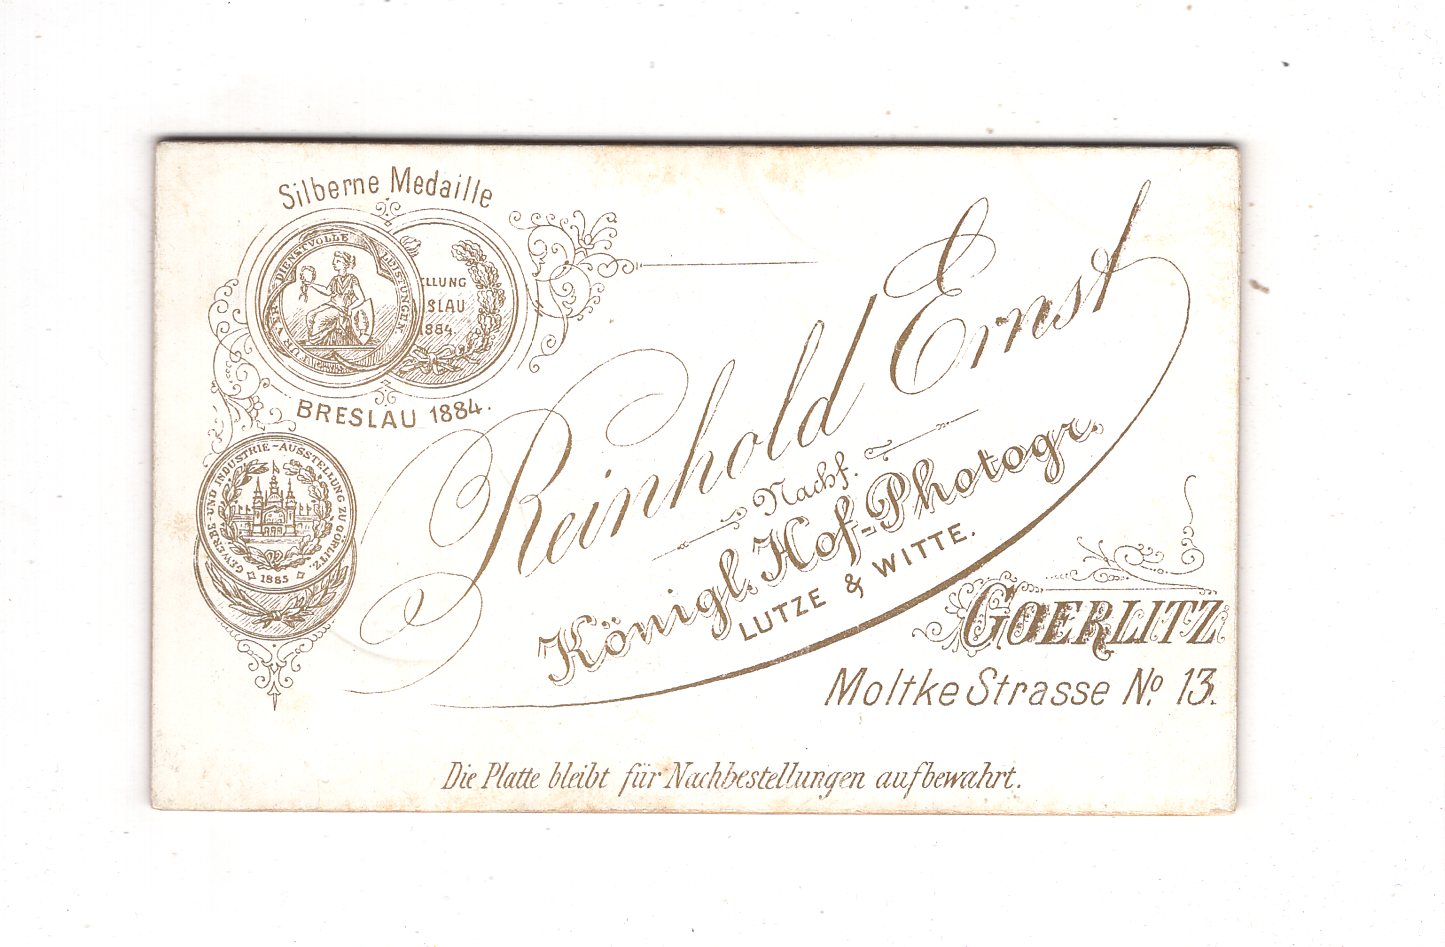 Silberne Medaille
FÜR VERDIENSTVOLLE LEISTUNGEN
LLUNG
SLAU
1884
BRESLAU 1884.
GEWERBE- UND INDUSTRIE-AUSSTELLUNG ZU GÖRLITZ.
1885
Reinhold Ernst
Nachf.
Königl. Hof-Photogr.
LUTZE & WITTE.
GOERLITZ
Moltke Strasse No. 13.
Die Platte bleibt für Nachbestellungen aufbewahrt.